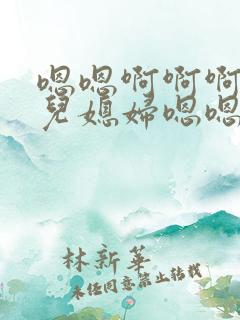 嗯嗯啊啊啊
兒媳婦嗯嗯
林新華
未任同意禁止转载